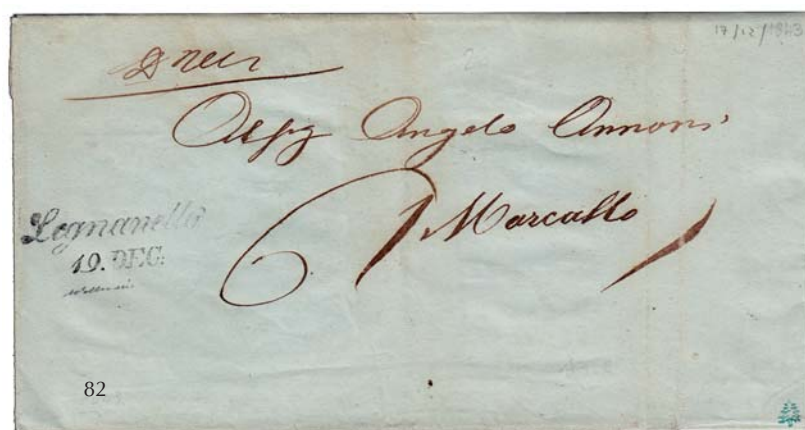 17/12/1843
Angelo Annoni
Marcallo
Legnanello
19. DEC.
82